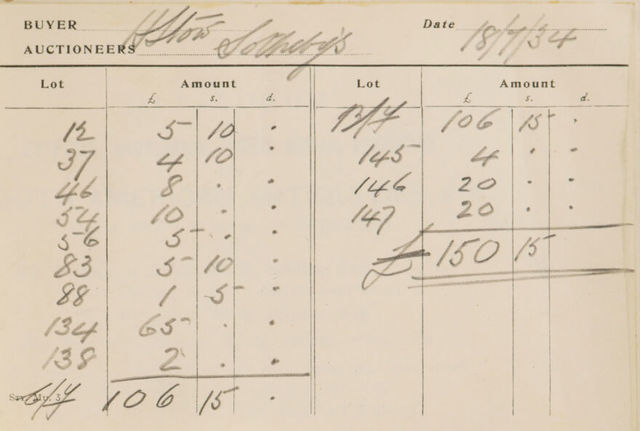 BUYER H Stow Date 18/7/34
AUCTIONEERS Sotheby's
Lot Amount
£ s. d.
12 5 10 .
37 4 10 .
46 8 . .
54 10 . .
56 5 . .
83 5 10 .
88 1 5 .
134 65 . .
138 2 . .
C/f 106 15 .
Lot Amount
£ s. d.
B/f 106 15 .
145 4 . .
146 20 . .
147 20 . .
£ 150 15